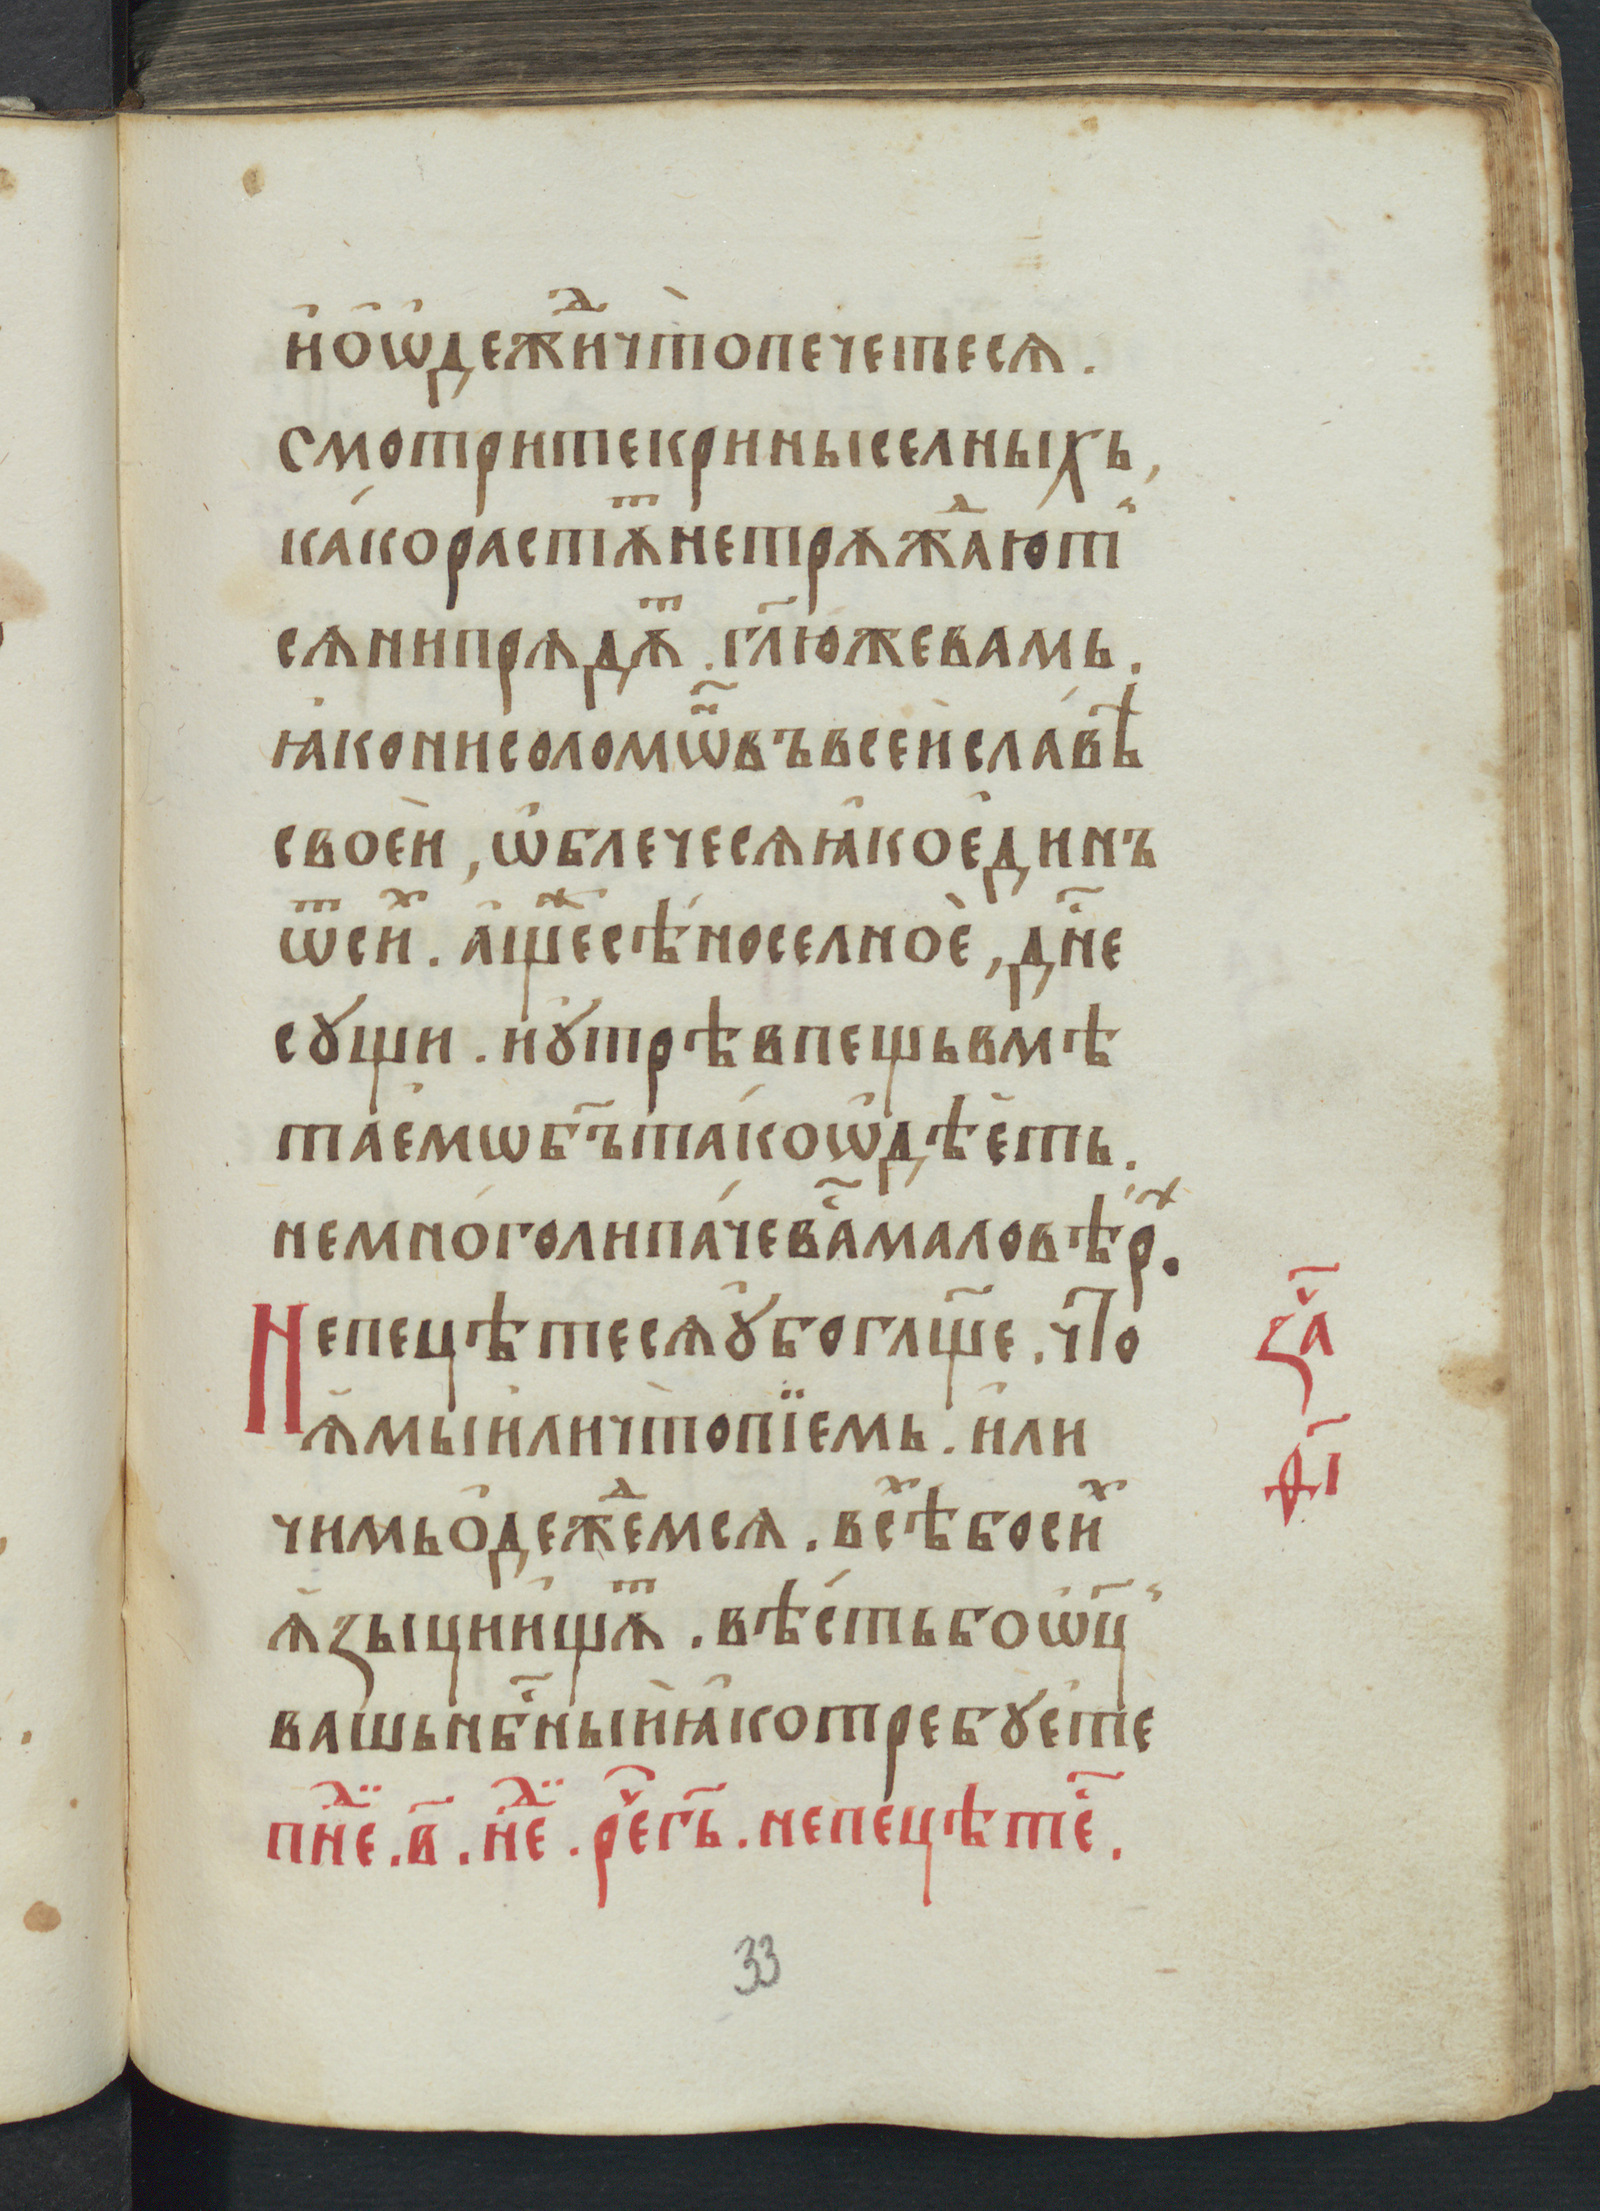 и҆ ѡ҆ ѡ҆деж̾ⷣи что̀ печетесѧ.
смотрите крины селныхъ,
ка́ко растѧⷮ не трѧжⷣают̾
сѧ ни прѧдѧⷮ. гл҃ю же вамь.
ꙗ҆ко ни соломѡⷩ҃ въ всеи̇ сла́вѣ
своеѝ, ѡ҆блечесѧ ꙗ҆ко є҆динъ
ѿ сиⷯ. а҆щеⷤ сѣ́но селноѐ, дн҃е
сꙋщи. и ꙋ҆трѣ в пещь вмѣ
таемѡ бг҃ъ та́ко ѡ҆дѣе҆ть.
не мно́го ли па́че ваⷭ҇ маловѣрїⷯ.
Не пецѣтесѧ ꙋ҆бо гл҃ще. чт҃о
ꙗ҆мы и҆ли что̀ пїемь. и҆ли
чимь ѻ҆дежеⷣмсѧ. всѣⷯ бо сиⷯ
ѧ҆зыци и҆щѧⷮ. вѣ́сть бо ѡ҆ц҃ь
вашь нб҃ныѝ ꙗ҆ко требꙋе҆те
пнеⷣ. в҃. неⷣ. рⷱ҇е гь҃. не пецѣтеⷭ҇.
заⷱ҇
ф҃і
33